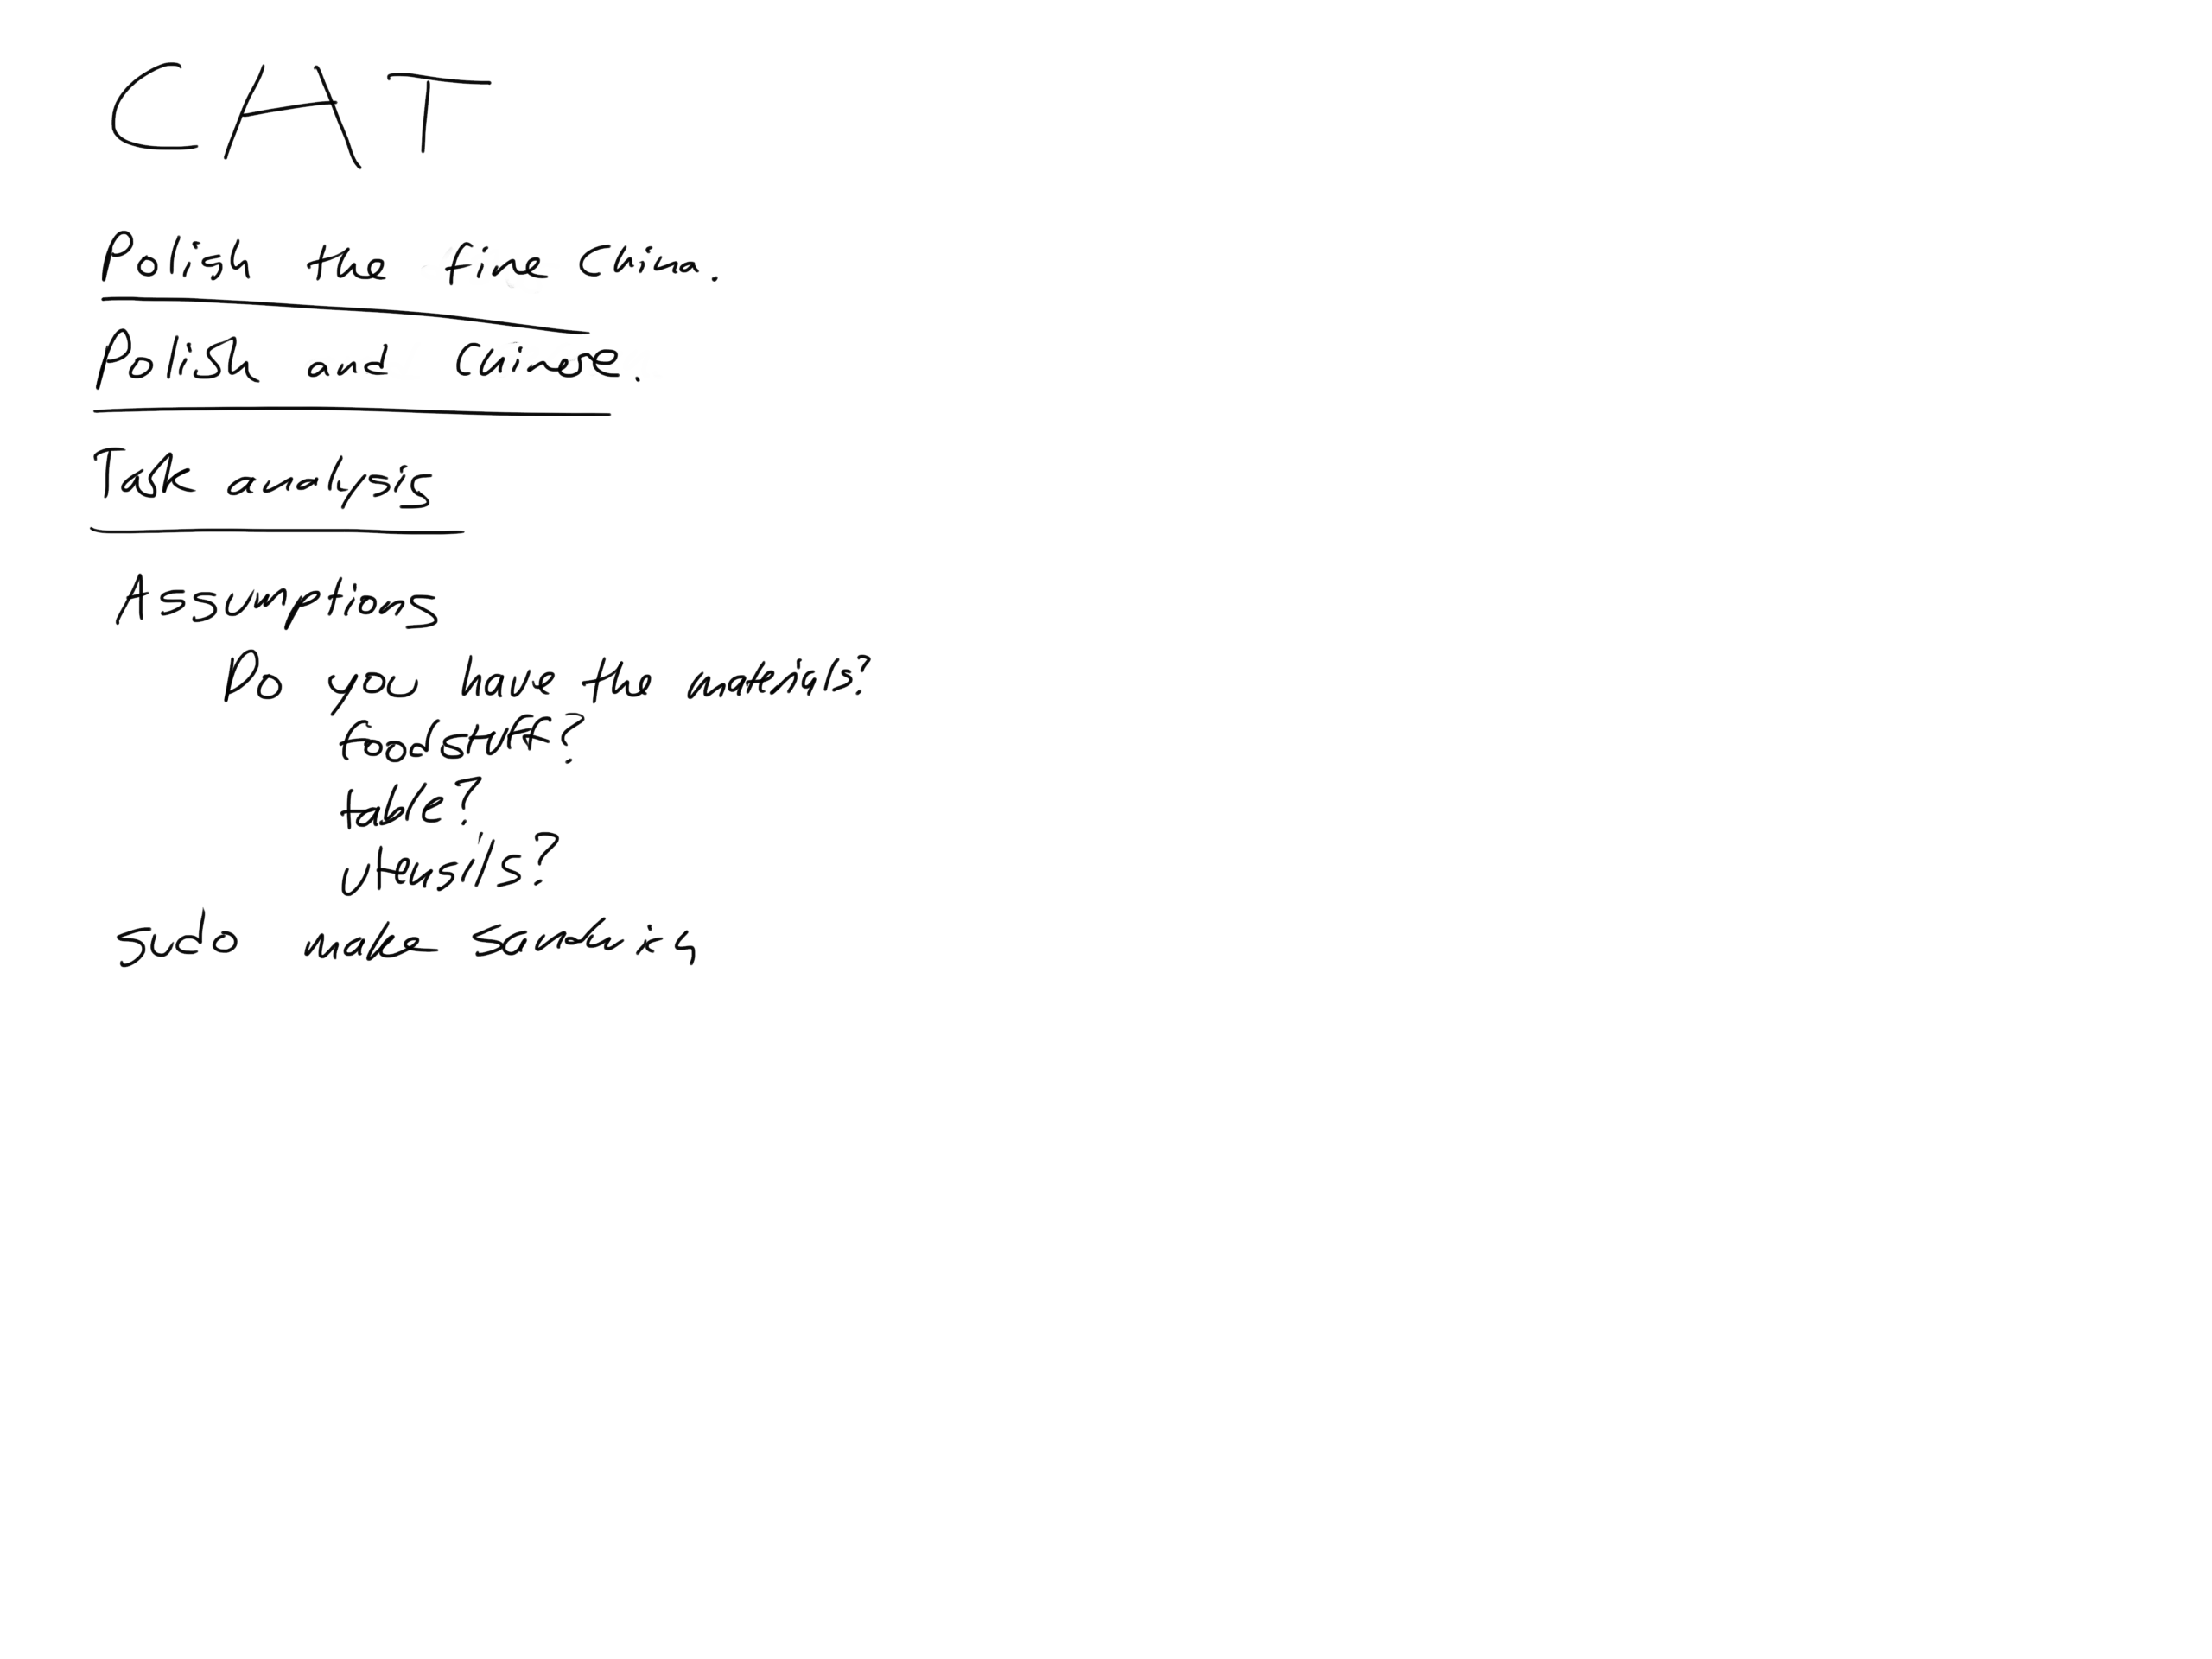 CAT
Polish the fine China.
Polish and Chinese.
Task analysis
Assumptions
Do you have the materials?
foodstuff?
table?
utensils?
sudo make sandwich